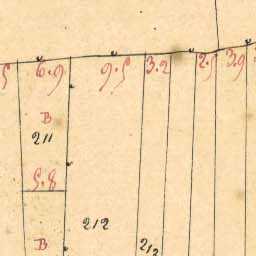 6.9 9.5 3.2 2.5 3.9
B
211
5.8
212
B
213